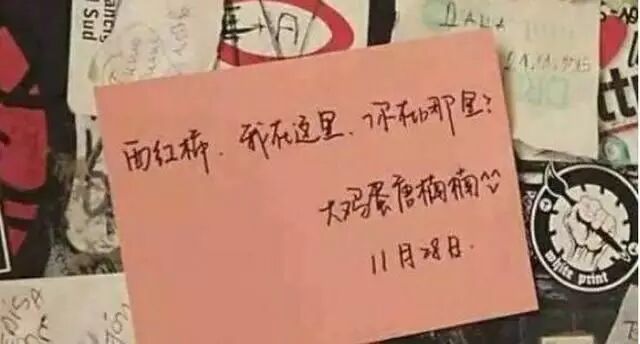 ancis
l Sud
A
DANA
21.11.2015
西红柿,我在这里,你在哪里?
大鸡蛋唐楠楠^^
11月28日.
white print